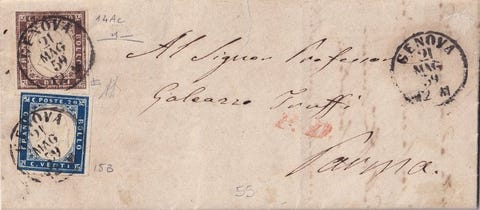 14Ac
FRANCO
BOLLO
C. DIECI
GENOVA
21
MAG
59
C. POSTE 20
FRANCO
BOLLO
C. VENTI
GENOVA
21
MAG
59
15B
Al Signor Professor
Galeazzo Truffi
P. D.
Parma.
GENOVA
21
MAG
59
55